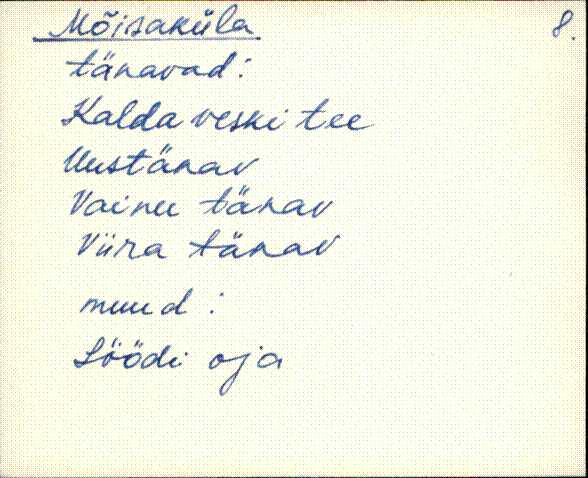 Mõisaküla 8.
tänavad:
Kaldaveski tee
Uustänav
Vainu tänav
Viira tänav
muud:
Söödi oja